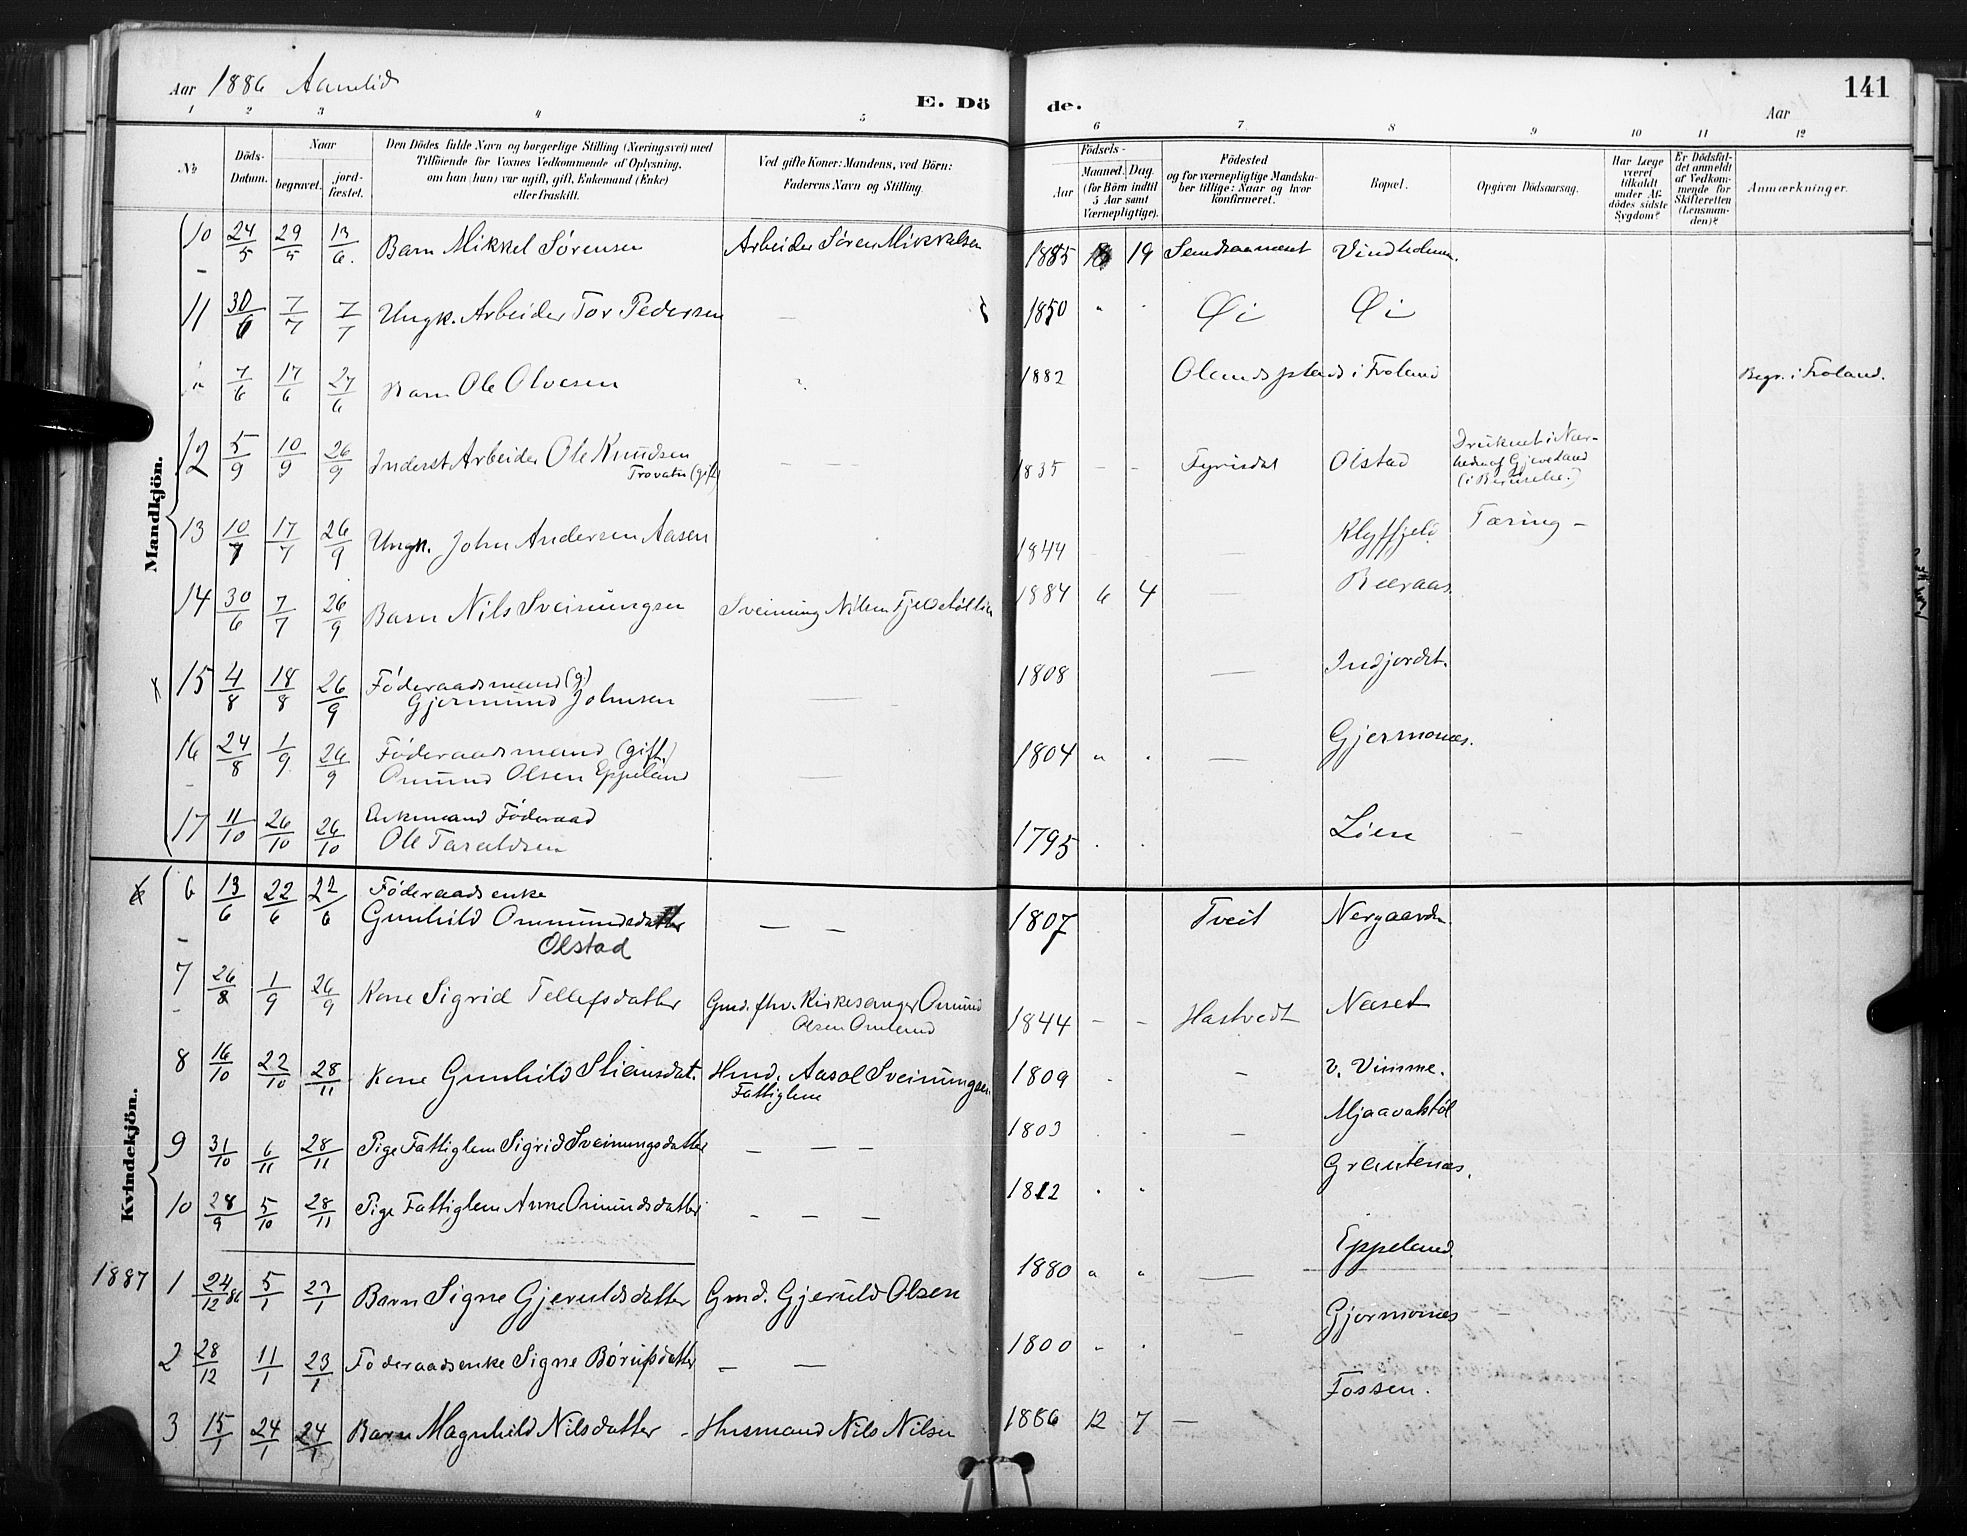 Aar 1886 Aamlid
E. Dö de.
Aar
141
1 2 3 4 5 6 7 8 9 10 11 12
No
Döds-Datum.
Naar
begravet.
jord-fæstet.
Den Dödes fulde Navn og borgerlige Stilling (Næringsvei) med
Tilföiende for Voxnes Vedkommende af Oplysning,
om han (hun) var ugift, gift, Enkemand (Enke)
eller fraskilt.
Ved gifte Koner: Mandens, ved Börn:
Faderens Navn og Stilling.
Födsels-
Aar
Maaned. Dag.
(for Börn indtil
5 Aar samt
Værnepligtige).
Födested
og for værnepligtige Mandska-
ber tillige: Naar og hvor
konfirmeret.
Bopæl.
Opgiven Dödsaarsag.
Har Læge
været
tilkaldt
under Af-
dödes sidste
Sygdom?
Er Dödsfal-
det anmeldt
af Vedkom-
mende for
Skifteretten
(Lensman-
den)?
Anmærkninger.
Mandkjön.
10 24/5 29/5 13/6. Barn Mikkel Sørensen Arbeider Søren Mikkelsen 1885 19 Vindholmen.
11 30/6 7/7 7/7 Ungk. Arbeider Tor Pedersen — 1850 " Øi Øi
7/6 17/6 27/6 Barn Ole Olvesen " 1882 Olandsplads i Froland Begr. i Froland.
12 5/9 10/9 26/9 Inderst Arbeider Ole Knudsen
Trovatn (gift) — — 1835 — — Fyrisdal Olstad Druknet i Nær-
heden af Gjeveland
13 10/7 17/7 26/9 Ungk. John Andersen Aasen 1844 — Klyffjeld Tæring —
14 30/6 7/7 26/9 Barn Nils Sveinungsen Sveinung Nilsen 1884 6 4 —
15 4/8 18/8 26/9 Föderaadsmand (g)
Gjermund Johnsen — 1808 — Indjordet.
16 24/8 1/9 26/9 Föderaadsmand (gift.)
Omund Olsen Eppeland — 1804 " . — Gjermones.
17 11/10 26/10 26/10 Enkemand Föderaad
Ole Taraldsen 1795 . . Lien —
Kvindekjön.
6 13/6 22/6 22/6 Föderaadsenke
Gunhild Ommundsdatter
Olstad — — 1807 Tveit Nergaarden
7 26/8 1/9 26/9 Kone Sigrid Tellefsdatter Gmd. fhv. Kirkesanger Omund
Olsen Omlend 1844 — — Hastvedt Næset
8 16/10 22/10 28/11 Kone Gunhild Stiansdat. Hmd. Aasol Sveinungsen
Fattiglem 1809 . — v. Vimme.
9 31/10 6/11 28/11 Pige Fattiglem Sigrid Sveinungsdatter — — — 1803 . . — Mjaavatstøl
10 28/9 5/10 28/11 Pige Fattiglem Anne Omundsdatter — — — 1812 . " Grautenæs.
1887 1 24/12 86 5/1 27/1 Barn Signe Gjeruldsdatter Gmd. Gjeruld Olsen 1880 " " — Eppeland.
2 28/12 11/1 23/1 Föderaadsenke Signe Børufsdatter — — 1800 " . — Gjermones —
3 15/1 24/1 24/1 Barn Magnhild Nilsdatter - Husmand Nils Nilsen 1886 12 7 — Fossen.